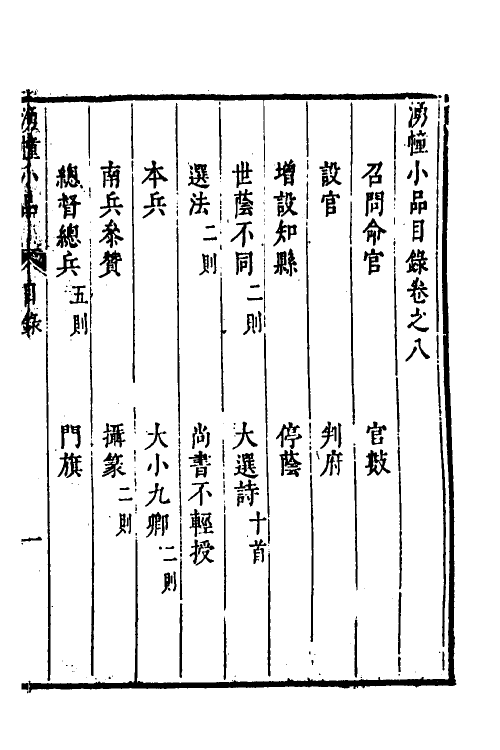 湧幢小品目錄卷之八
召問命官 官數
設官 判府
增設知縣 停蔭
世蔭不同二則 大選詩十首
選法二則 尚書不輕授
本兵 大小九卿二則
南兵叅贊 攝篆二則
總督總兵五則 門旗
湧幢小品 目錄 一